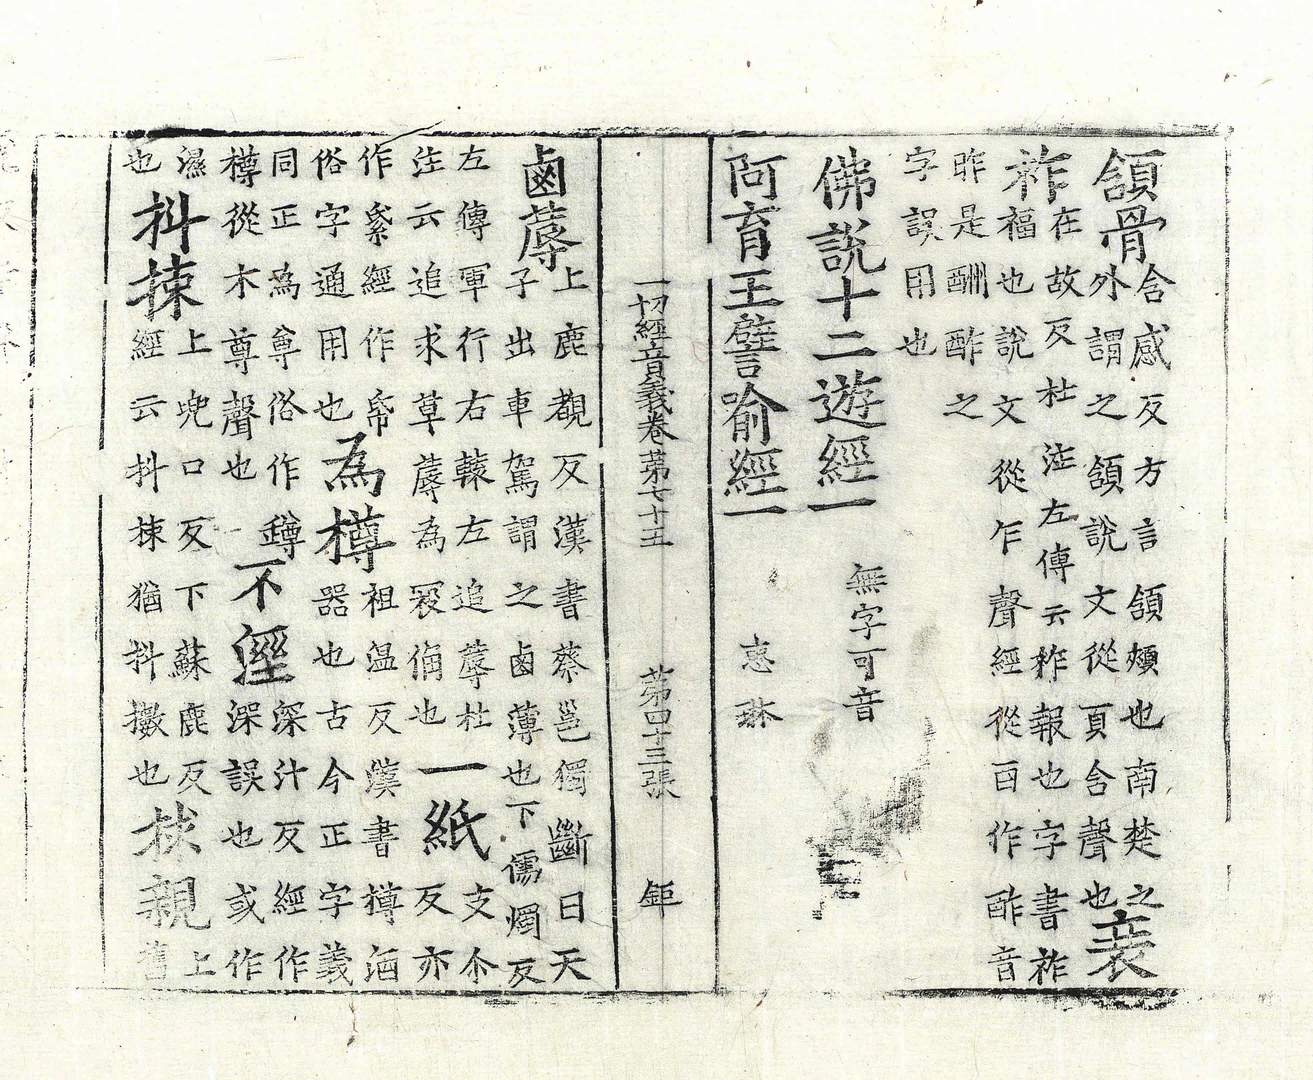 頷骨
含感反方言頷頰也南楚之
外謂之頷說文從頁含聲也
祚
在故反杜注左傳云祚報也字書祚
福也說文從乍聲經從酉作酢音
昨是酬酢之
字誤用也
佛說十二遊經一 無字可音
阿育王譬喻經一 惠琳
一切經音義卷苐七十五 苐四十三張 鉅
鹵蓐
上鹿覩反漢書蔡邕獨斷曰天
子出車駕謂之鹵薄也下儒燭反
左傳軍行右轅左追蓐杜
注云追求草蓐為俻也
一紙
支尒
反亦
作經作帋
俗字通用也
為樽
祖温反漢書樽酒
器也古今正字義
同正為尊俗作罇
樽從木尊聲也
不溼
深汁反經作
深誤也或作
濕
也
抖捒
上兜口反下蘇鹿反
經云抖捒猶抖擻也
捄親
上
舊